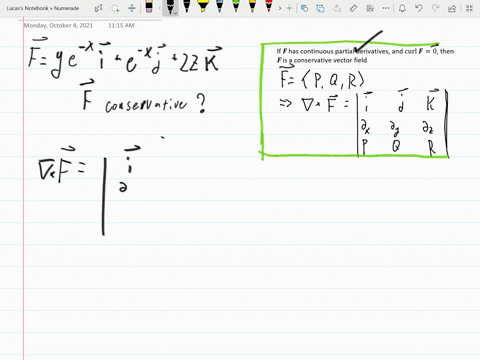 Lucas's Notebook » Numerade
Monday, October 4, 2021 11:15 AM
F⃗ = y e^{-x} i⃗ + e^{-x} j⃗ + 2z K⃗
F⃗ conservative ?
If F has continuous partial derivatives, and curl F = 0⃗, then
F is a conservative vector field
F⃗ = ⟨P, Q, R⟩
⇒ ∇ × F⃗ = | i⃗ j⃗ K⃗
∂x ∂y ∂z
P Q R |
∇ × F⃗ = | i⃗
∂